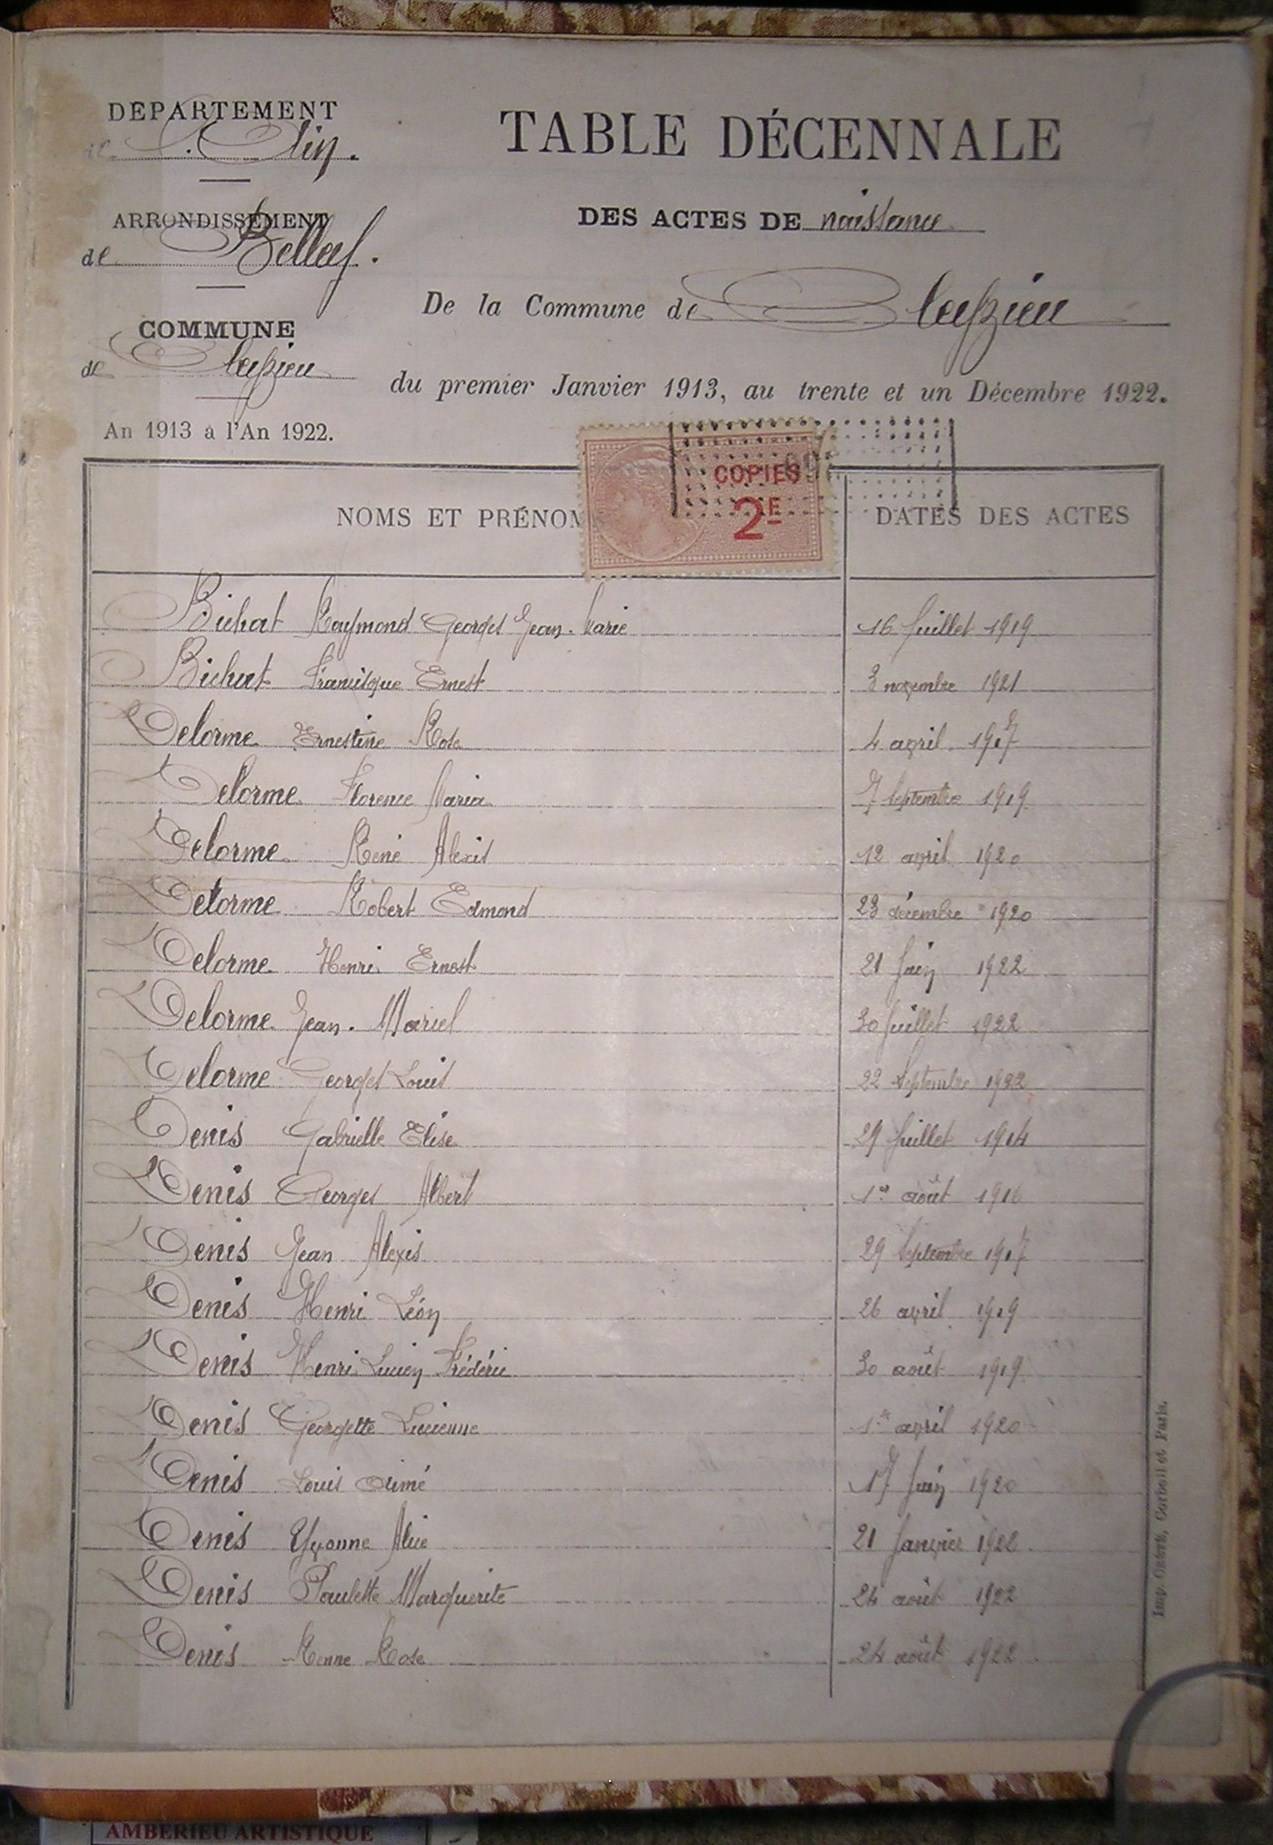 DÉPARTEMENT
de l'Ain.
ARRONDISSEMENT
de Belley.
COMMUNE
de Cleyzieu
An 1913 à l'An 1922.
TABLE DÉCENNALE
DES ACTES DE naissance
De la Commune de Cleyzieu
du premier Janvier 1913, au trente et un Décembre 1922.
COPIES
2E
NOMS ET PRÉNOM
DATES DES ACTES
Bichat Raymond Georges Jean-Marie 16 Juillet 1919
Bichat Francisque Ernest 3 novembre 1921
Delorme Ernestine Rose 4 avril 1917
Delorme Florence Maria 7 Septembre 1919
Delorme René Alexis 12 avril 1920
Delorme Robert Edmond 23 décembre 1920
Delorme Henri Ernest 21 Juin 1922
Delorme Jean-Marcel 30 Juillet 1922
Delorme Georges Louis 22 Septembre 1922
Denis Gabrielle Elise 29 Juillet 1914
Denis Georges Albert 1er août 1916
Denis Jean Alexis 29 Septembre 1917
Denis Henri Léon 26 avril 1919
Denis Henri Lucien Frédéric 30 août 1919
Denis Georgette Lucienne 1er avril 1920
Denis Louis Aimé 17 Juin 1920
Denis Yvonne Alice 21 Janvier 1922
Denis Paulette Marguerite 24 août 1922
Denis Rose 24 août 1922
Imp. Corbeil et Paris.
AMBERIEU ARTISTIQUE